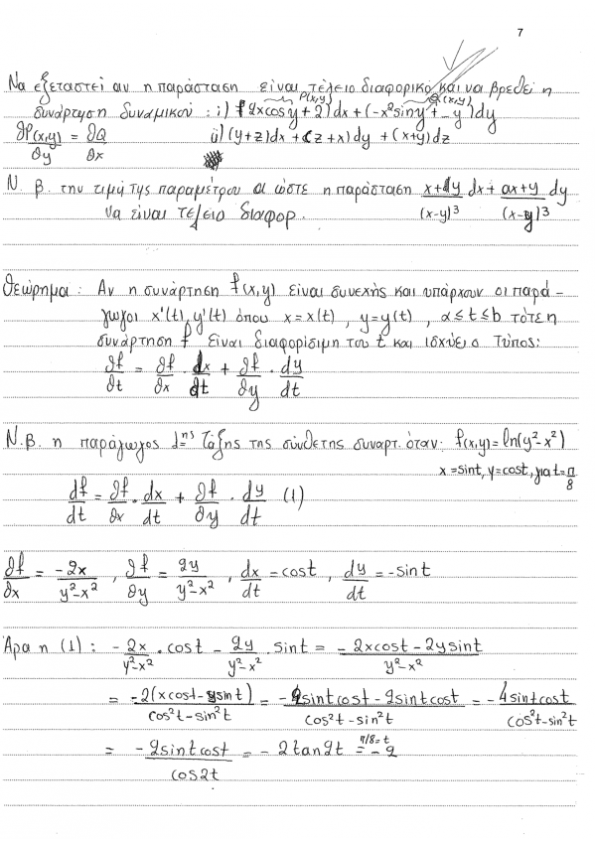 7
Να εξεταστεί αν η παράσταση είναι τέλειο διαφορικό και να βρεθεί η
P(x,y) Q(x,y)
συνάρτηση δυναμικού: i) (2xcosy + 2)dx + (-x²siny + - y)dy
∂P(x,y)/∂y = ∂Q/∂x ii) (y+z)dx + (z+x)dy + (x+y)dz
Ν. β. την τιμή της παραμέτρου α ώστε η παράσταση x+dy/(x-y)³ dx + ax+y/(x-y)³ dy
να είναι τέλειο διαφορ.
Θεώρημα: Αν η συνάρτηση f(x,y) είναι συνεχής και υπάρχουν οι παρά-
γωγοι x'(t), y'(t) όπου x=x(t), y=y(t), α≤t≤b τότε η
συνάρτηση f είναι διαφορίσιμη του t και ισχύει ο τύπος:
∂f/∂t = ∂f/∂x · dx/dt + ∂f/∂y · dy/dt
Ν.β. η παράγωγος 1ης τάξης της σύνθετης συναρτ. όταν: f(x,y)=ln(y²-x²)
x=sint, y=cost, για t=π/8
df/dt = ∂f/∂x · dx/dt + ∂f/∂y · dy/dt (1)
∂f/∂x = -2x/y²-x² , ∂f/∂y = 2y/y²-x² , dx/dt = cost , dy/dt = -sint
Άρα η (1): -2x/y²-x² · cost - 2y/y²-x² · sint = -2xcost-2ysint/y²-x²
= -2(xcost-ysint)/cos²t-sin²t = -2sintcost-2sintcost/cos²t-sin²t = -4sintcost/cos²t-sin²t
= -2sintcost/cos2t = -2tan2t π/8=t = -2